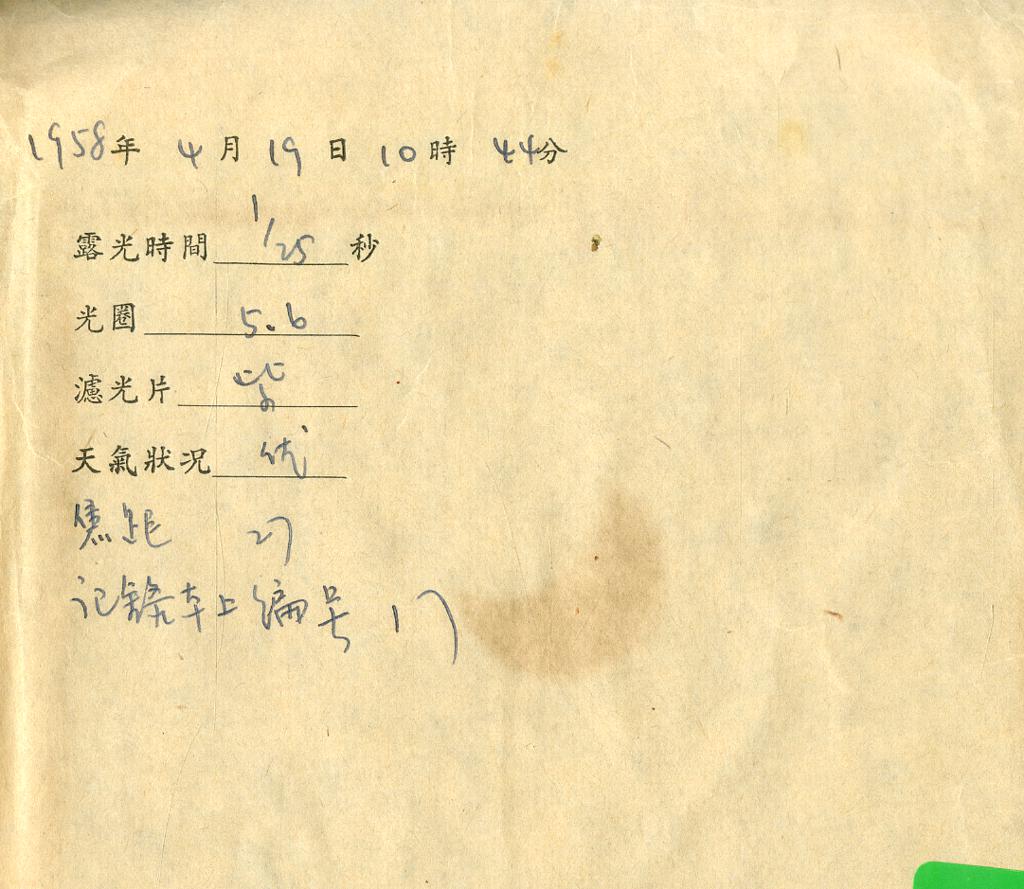 1958年 4月 19日 10時 44分
露光時間 1/25 秒
光圈 5.6
濾光片 紫
天氣狀況 优
焦距 27
记錄本上编号 17